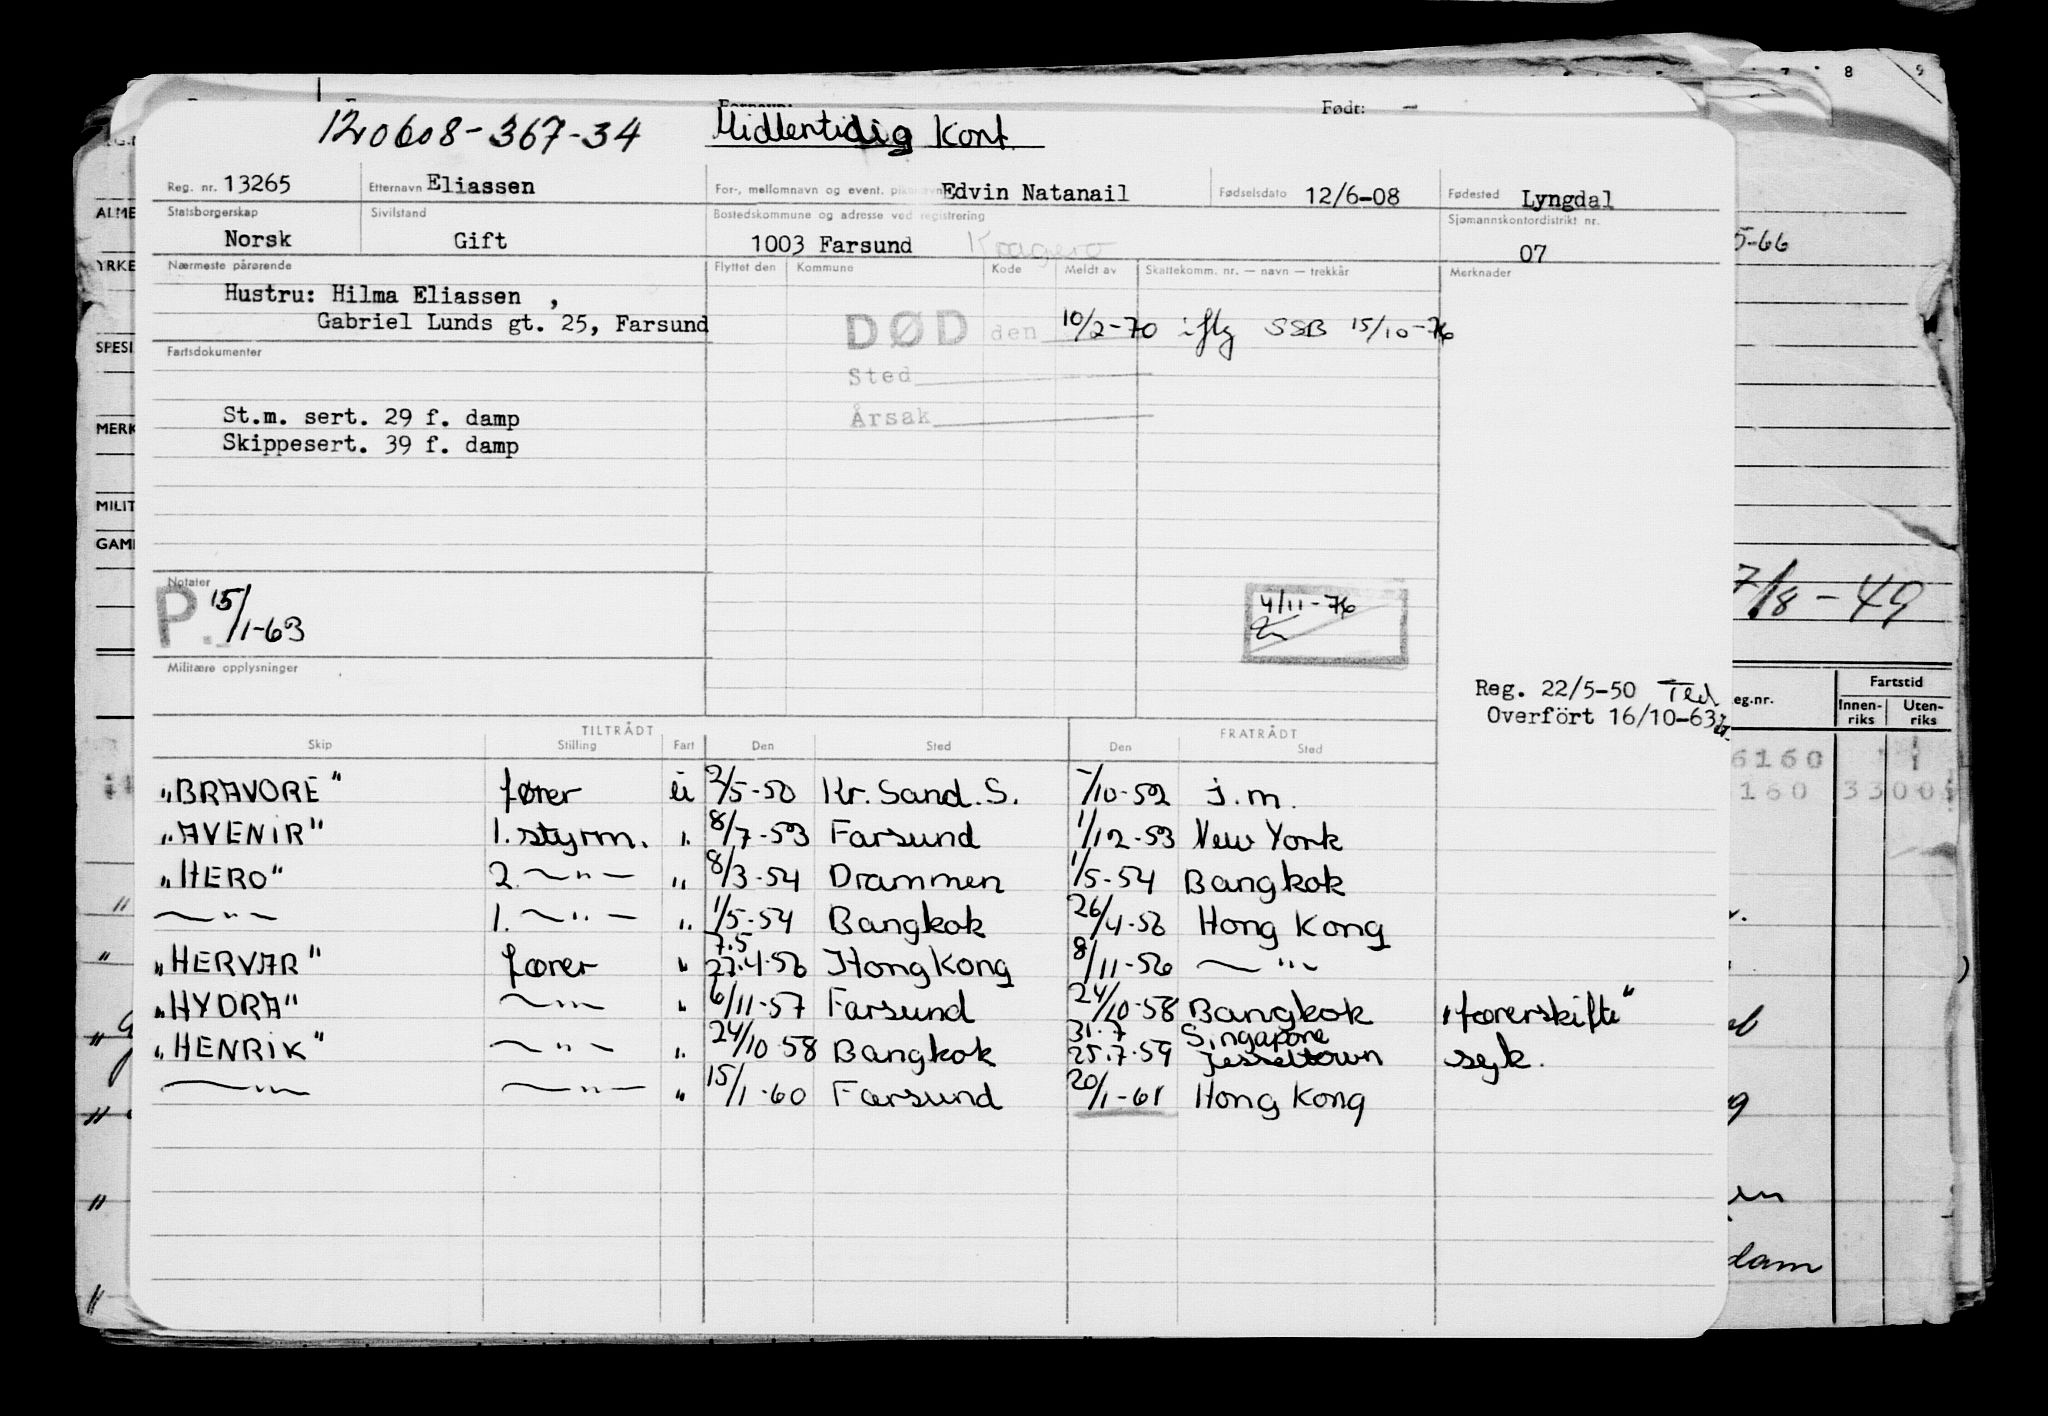 Fornavn: Født: —
120608-367-34 Midlertidig Kort.
Reg. nr. 13265 Etternavn Eliassen For-, mellomnavn og event. pikenavn Edvin Natanail Fødselsdato 12/6-08 Fødested Lyngdal
Statsborgerskap Sivilstand Bostedskommune og adresse ved registrering Sjømannskontordistrikt nr.
Norsk Gift 1003 Farsund 07
Nærmeste pårørende Flyttet den Kommune Kode Meldt av Skattekomm. nr. — navn — trekkår Merknader
Hustru: Hilma Eliassen ,
Gabriel Lunds gt. 25, Farsund
DØD den 10/2-70 iflg SSB 15/10-76
Fartsdokumenter
Sted
Årsak
St.m. sert. 29 f. damp
Skippesert. 39 f. damp
Notater
P. 15/1-63
4/11-76
Militære opplysninger
Reg. 22/5-50
Overfört 16/10-63
TILTRÅDT FRATRÅDT
Skip Stilling Fart Den Sted Den Sted
"BRAVORE" fører ú 2/5-50 Kr.Sand.S. -/10-52 j.m.
"AVENIR" 1. styrm. ". 8/7-53 Farsund 1/12-53 New York
"HERO" 2. —"— " 8/3-54 Drammen 1/5-54 Bangkok
—"— 1. —"— " 1/5-54 Bangkok 26/4-56 Hong Kong
7.5
"HERVAR" fører " 27.4-56 Hong Kong 8/11-56 —"—
"HYDRA" —"— " 6/11-57 Farsund 24/10-58 Bangkok "førerskifte"
31.7 Singapore
"HENRIK" —"— " 24/10 58 Bangkok 25.7-59 Jesseltown syk.
—"— —"— " 15/1-60 Farsund 20/1-61 Hong Kong
ALME
YRKE
SPESI
MERK
MILIT
GAM
8 9
5-66
7/8-49
eg.nr. Fartstid
Innen-riks Uten-riks
6160
160 3300
dam